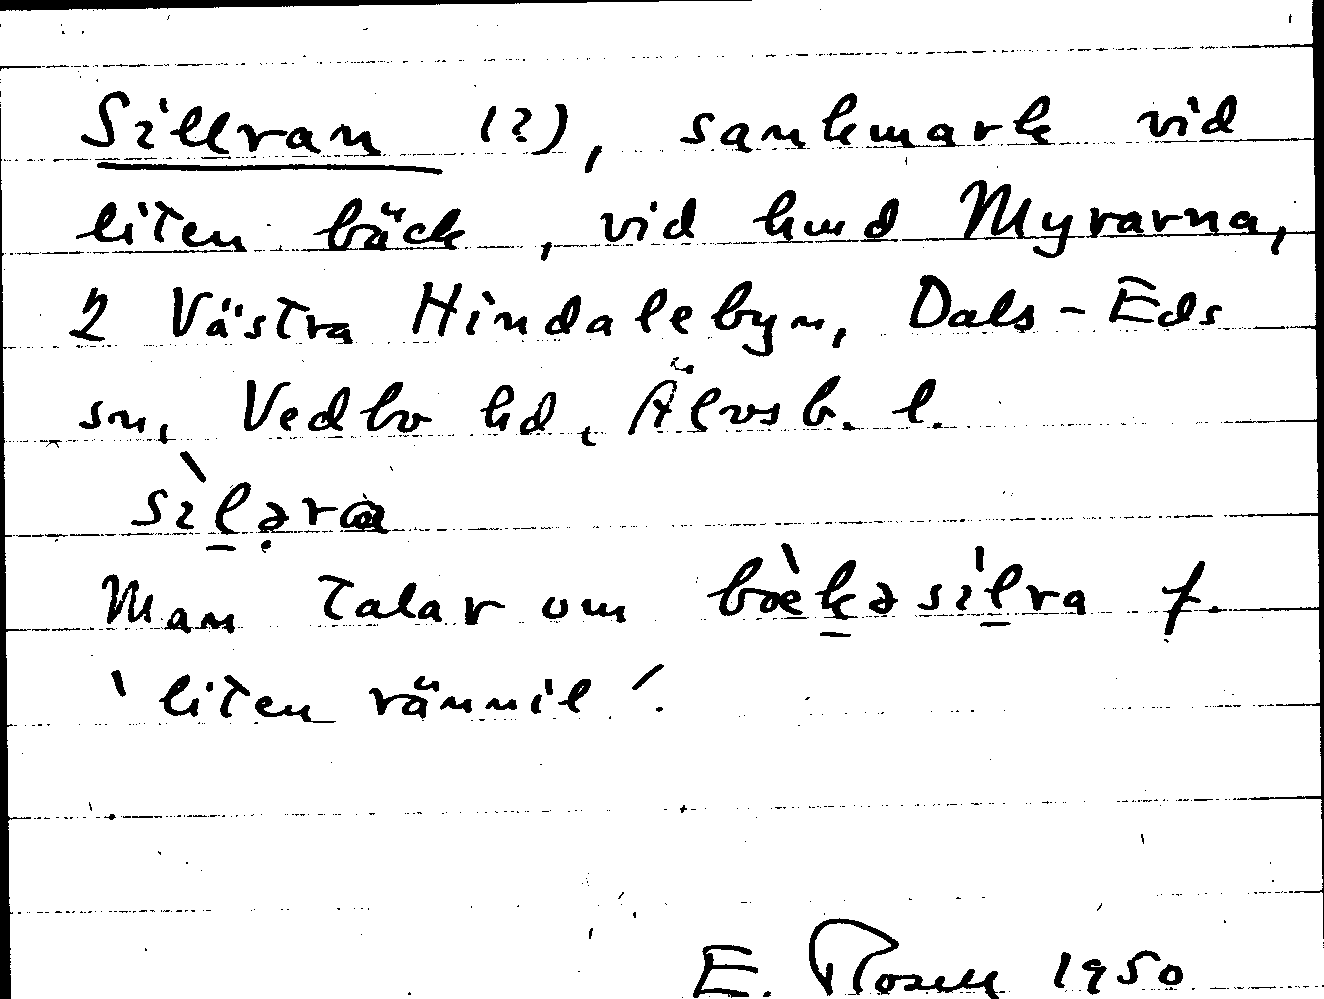 Sillran (?), sankmark vid
liten bäck, vid hmd Myrarna,
2 Västra Hindalebyn, Dals-Eds
sn, Vedbo hd, Älvsb. l.
sìl̠əra
Man talar om bœ̀k̠əsìl̠ra f.
'liten rännil'.
E. Rosell 1950